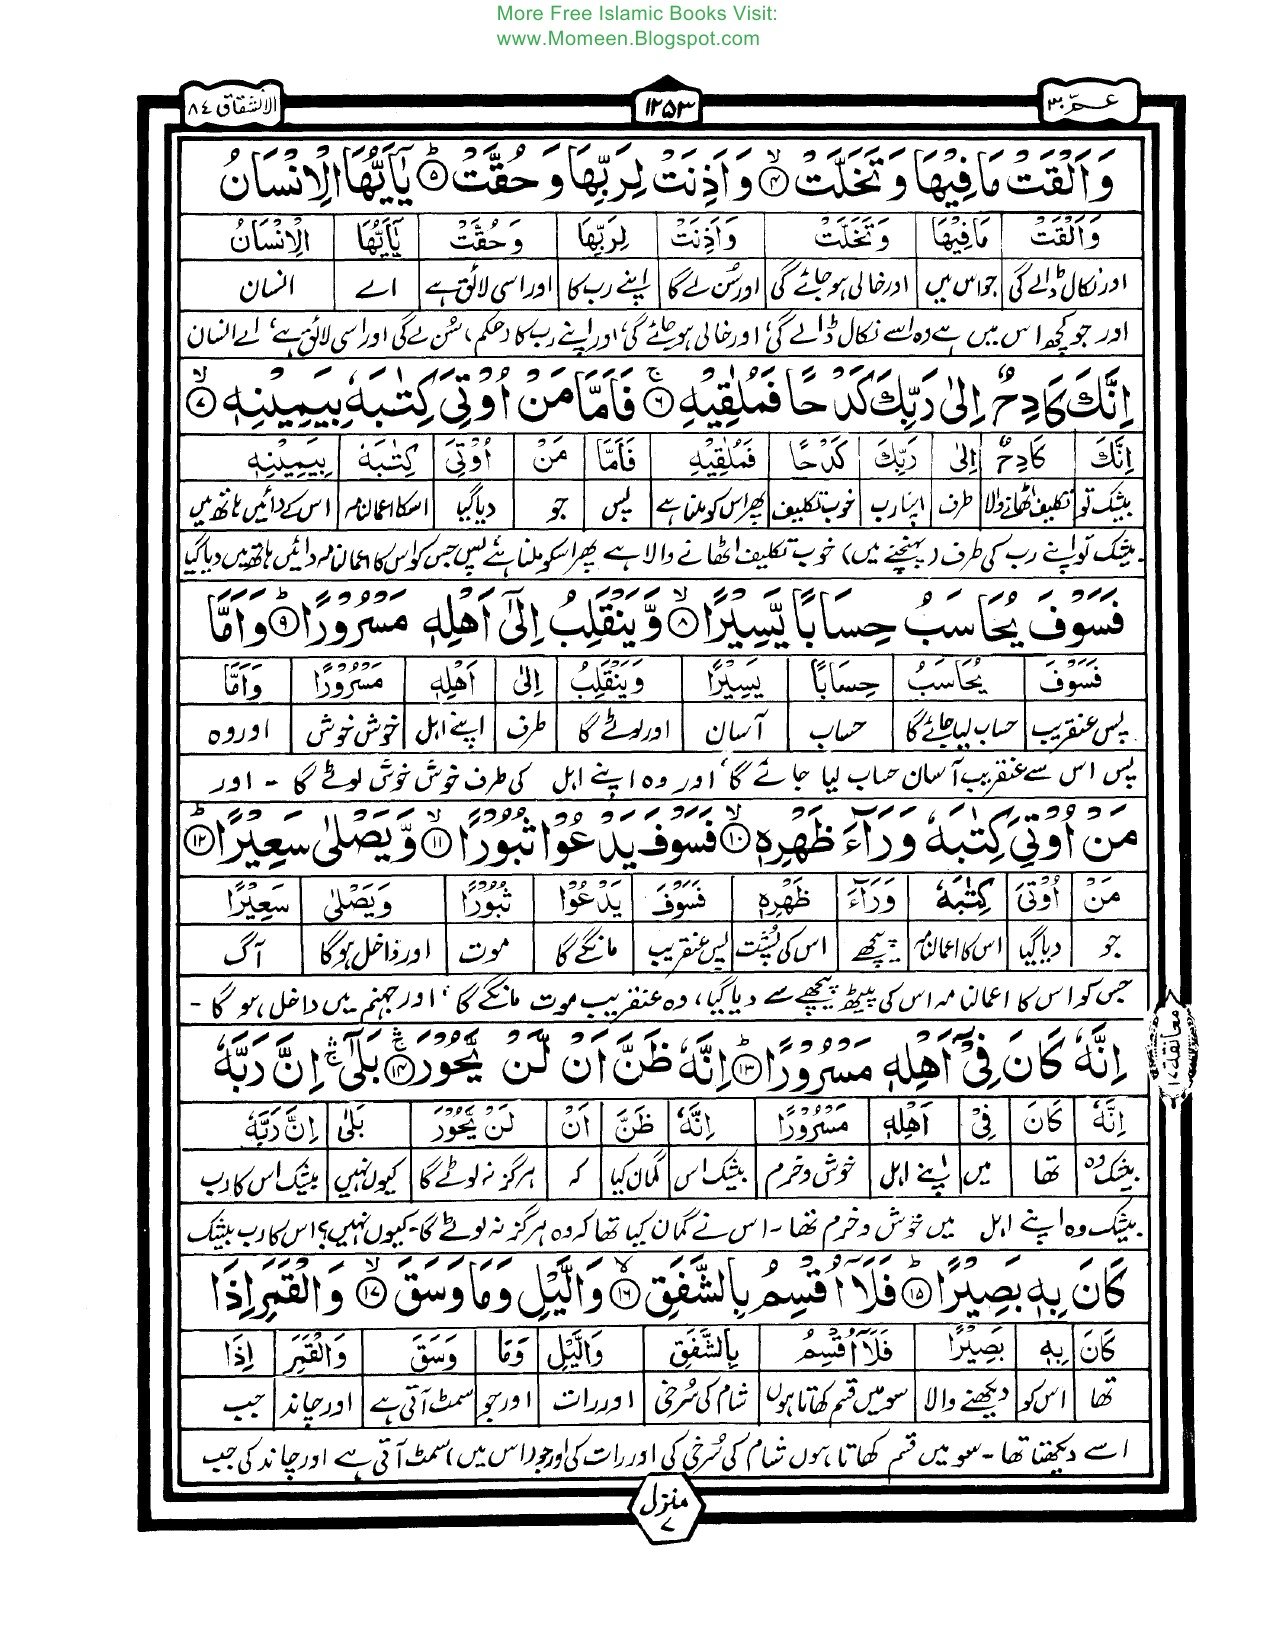 More Free Islamic Books Visit:
www.Momeen.Blogspot.com
عمّ ٣٠
١٢٥٣
الانشقاق ٨٤
وَاَلْقَتْ مَا فِيْهَا وَتَخَلَّتْ ۙ﴿۴﴾ وَاَذِنَتْ لِرَبِّهَا وَحُقَّتْ ؕ﴿۵﴾ يٰۤاَيُّهَا الْاِنْسَانُ
وَاَلْقَتْ مَا فِيْهَا وَتَخَلَّتْ وَاَذِنَتْ لِرَبِّهَا وَحُقَّتْ يٰۤاَيُّهَا الْاِنْسَانُ
اور نکال ڈالے گی جو اس میں اور خالی ہو جائے گی اور سُن لے گا اپنے رب کا اور اسی لائق ہے اے انسان
اور جو کچھ اس میں ہے وہ اسے نکال ڈالے گی، اور خالی ہو جائے گی، اور اپنے رب کا (حکم) سُن لے گی اور اسی لائق ہے، اے انسان
اِنَّكَ كَادِحٌ اِلٰى رَبِّكَ كَدْحًا فَمُلٰقِيْهِ ۚ﴿۶﴾ فَاَمَّا مَنْ اُوْتِىَ كِتٰبَهٗ بِيَمِيْنِهٖ ۙ﴿۷﴾
اِنَّكَ كَادِحٌ اِلٰى رَبِّكَ كَدْحًا فَمُلٰقِيْهِ فَاَمَّا مَنْ اُوْتِىَ كِتٰبَهٗ بِيَمِيْنِهٖ
بیشک تو تکلیف اٹھانے والا طرف اپنا رب خوب تکلیف پھر اس کو ملنا ہے پس جو دیا گیا اسکا اعمالنامہ اس کے دائیں ہاتھ میں
بیشک تو اپنے رب کی طرف (پہنچنے میں) خوب تکلیف اٹھانے والا ہے پھر اسکو ملنا ہے پس جس کو اس کا اعمالنامہ دائیں ہاتھ میں دیا گیا
فَسَوْفَ يُحَاسَبُ حِسَابًا يَّسِيْرًا ۙ﴿۸﴾ وَّيَنْقَلِبُ اِلٰٓى اَهْلِهٖ مَسْرُوْرًا ؕ﴿۹﴾ وَاَمَّا
فَسَوْفَ يُحَاسَبُ حِسَابًا يَسِيْرًا وَيَنْقَلِبُ اِلٰى اَهْلِهٖ مَسْرُوْرًا وَاَمَّا
پس عنقریب حساب لیا جائے گا حساب آسان اور لوٹے گا طرف اپنے اہل خوش خوش اور وہ
پس اس سے عنقریب آسان حساب لیا جائے گا، اور وہ اپنے اہل کی طرف خوش خوش لوٹے گا - اور
مَنْ اُوْتِىَ كِتٰبَهٗ وَرَآءَ ظَهْرِهٖ ۙ﴿۱۰﴾ فَسَوْفَ يَدْعُوْا ثُبُوْرًا ۙ﴿۱۱﴾ وَّيَصْلٰى سَعِيْرًا ؕ﴿۱۲﴾
مَنْ اُوْتِىَ كِتٰبَهٗ وَرَآءَ ظَهْرِهٖ فَسَوْفَ يَدْعُوْا ثُبُوْرًا وَيَصْلٰى سَعِيْرًا
جو دیا گیا اس کا اعمالنامہ پیچھے اس کی پُشت پس عنقریب مانگے گا موت اور داخل ہوگا آگ
جس کو اس کا اعمالنامہ اس کی پیٹھ پیچھے سے دیا گیا، وہ عنقریب موت مانگے گا، اور جہنم میں داخل ہو گا -
اِنَّهٗ كَانَ فِىْٓ اَهْلِهٖ مَسْرُوْرًا ؕ﴿۱۳﴾ اِنَّهٗ ظَنَّ اَنْ لَّنْ يَّحُوْرَ ۚ﴿۱۴﴾ بَلٰٓى ۚ اِنَّ رَبَّهٗ
معانقه ١٧
اِنَّهٗ كَانَ فِىْ اَهْلِهٖ مَسْرُوْرًا اِنَّهٗ ظَنَّ اَنْ لَنْ يَحُوْرَ بَلٰى اِنَّ رَبَّهٗ
بیشک وہ تھا میں اپنے اہل خوش و خرم بیشک اس گمان کیا کہ ہرگز نہ لوٹے گا کیوں نہیں بیشک اس کا رب
بیشک وہ اپنے اہل میں خوش و خرم تھا - اس نے گمان کیا تھا کہ وہ ہرگز نہ لوٹے گا - کیوں نہیں؟ اس کا رب بیشک
كَانَ بِهٖ بَصِيْرًا ؕ﴿۱۵﴾ فَلَاۤ اُقْسِمُ بِالشَّفَقِ ۙ﴿۱۶﴾ وَالَّيْلِ وَمَا وَسَقَ ۙ﴿۱۷﴾ وَالْقَمَرِ اِذَا
كَانَ بِهٖ بَصِيْرًا فَلَاۤ اُقْسِمُ بِالشَّفَقِ وَالَّيْلِ وَمَا وَسَقَ وَالْقَمَرِ اِذَا
تھا اس کو دیکھنے والا سو میں قسم کھاتا ہوں شام کی سُرخی اور رات اور جو سمٹ آتی ہے اور چاند جب
اسے دیکھتا تھا - سو میں قسم کھاتا ہوں شام کی سُرخی کی اور رات کی اور جو (اس میں) سمٹ آتی ہے اور چاند کی جب
منزل ٧